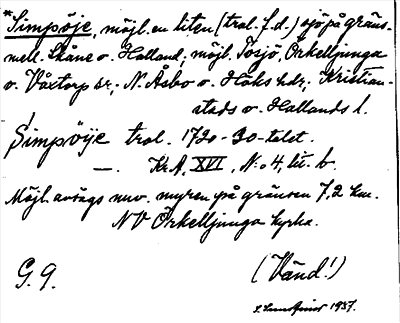 *Simpöje, möjl. en liten (trol. f.d.) sjö på gräns.
mell. Skåne o. Halland, möjl. Tosjö, Örkelljunga
o. Våxtorp sr; N. Åsbo o. Höks hdr; Kristian-
stads o. Hallands l.
Simpöije trol. 1720-30-talet.
—. Kr.A. XVI, N:o 4, lit. b.
Möjl. avses nuv. myren på gränsen 7,2 km.
NV Örkelljunga kyrka.
G. 9.
(Vänd!)
1937.